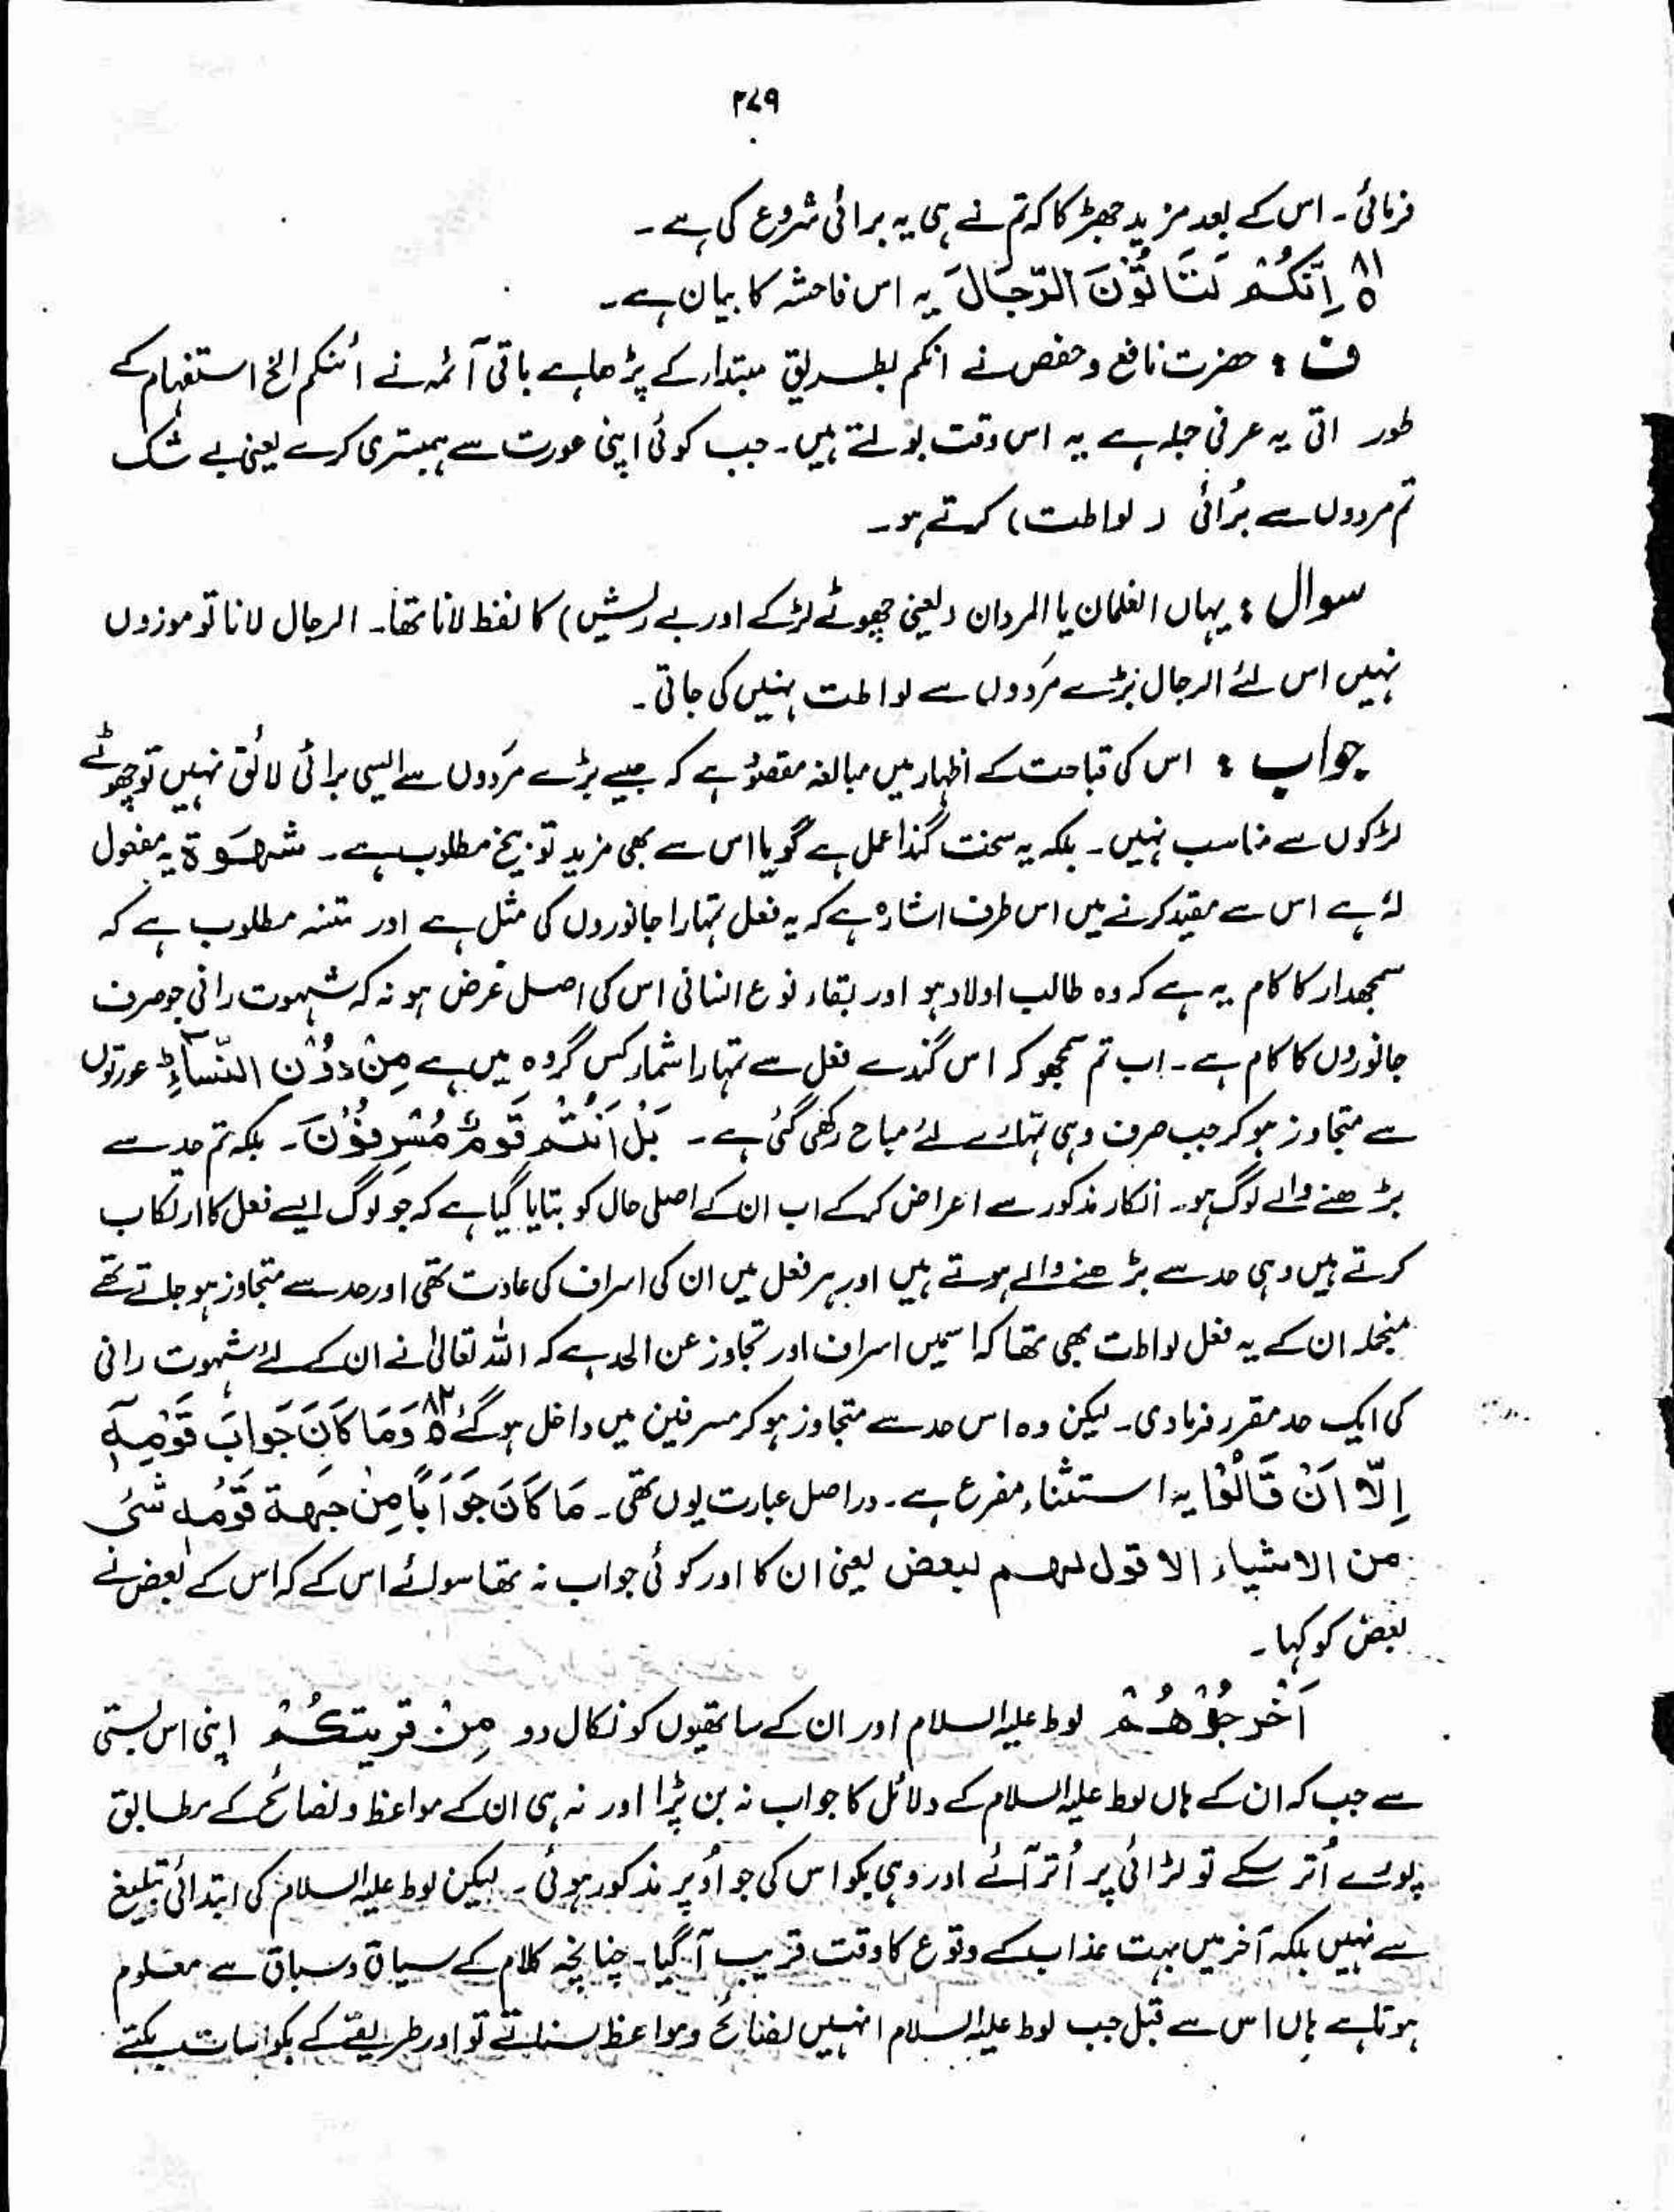 ۲۷۹
فرمائی۔ اس کے بعد مزید جھڑکا کہ تم نے ہی یہ برائی شروع کی ہے۔
۸۱ اِنَّکُمْ لَتَاْتُوْنَ الرِّجَالَ یہ اس فاحشہ کا بیان ہے۔
ف : حضرت نافع و حفص نے انکم بطریق مبتدار کے پڑھا ہے باقی آئمہ نے أئنکم الخ استفہام کے
طور اتی یہ عرفی جملہ ہے یہ اس وقت بولتے ہیں۔ جب کوئی اپنی عورت سے ہمبستری کرے یعنی بے شک
تم مردوں سے بُرائی ( لواطت) کرتے ہو۔
سوال : یہاں الغلمان یا المردان (یعنی چھوٹے لڑکے اور بے ریش) کا لفظ لانا تھا۔ الرجال لانا تو موزوں
نہیں اس لئے الرجال بڑے مَردوں سے لواطت نہیں کی جاتی۔
جواب : اس کی قباحت کے اظہار میں مبالغہ مقصود ہے کہ جیسے بڑے مَردوں سے ایسی برائی لائق نہیں تو چھوٹے
لڑکوں سے مناسب نہیں۔ بلکہ یہ سخت گندا عمل ہے گویا اس سے بھی مزید توبیخ مطلوب ہے۔ شَهْوَة یہ مفعول
لہٗ ہے اس سے مقید کرنے میں اس طرف اشارہ ہے کہ یہ فعل تمہارا جانوروں کی مثل ہے اور متنبہ مطلوب ہے کہ
سمجھدار کا کام یہ ہے کہ وہ طالب اولاد ہو اور بقاء نوع انسانی اس کی اصل غرض ہو نہ کہ شہوت رانی جو صرف
جانوروں کا کام ہے۔ اب تم سمجھو کہ اس گندے فعل سے تمہارا شمار کس گروہ میں ہے مِنْ دُوْنِ النِّسَآءِ عورتوں
سے متجاوز ہو کر جب صرف وہی تمہارے لئے مباح رکھی گئی ہے۔ بَلْ اَنْتُمْ قَوْمٌ مُّسْرِفُوْنَ۔ بلکہ تم حد سے
بڑھنے والے لوگ ہو۔ انکار مذکور سے اعراض کرکے اب ان کے اصلی حال کو بتایا گیا ہے کہ جو لوگ ایسے فعل کا ارتکاب
کرتے ہیں وہی حد سے بڑھنے والے ہوتے ہیں اور ہر فعل میں ان کی اسراف کی عادت تھی اور حد سے متجاوز ہو جاتے تھے
منجملہ ان کے یہ فعل لواطت بھی تھا کہ اسمیں اسراف اور تجاوز عن الحد ہے کہ اللہ تعالیٰ نے ان کے لئے شہوت رانی
کی ایک حد مقرر فرما دی۔ لیکن وہ اس حد سے متجاوز ہو کر مسرفین میں داخل ہو گئے ۸۲ وَمَا کَانَ جَوَابَ قَوْمِهٖٓ
اِلَّا اَنْ قَالُوْا یہ استثناء مفرع ہے۔ دراصل عبارت یوں تھی۔ مَا کَانَ جَوَابًا مِنْ جِهة قَوْمِه شَئ
من الاشیاء الا قول لهم لبعض یعنی ان کا اور کوئی جواب نہ تھا سوائے اس کے کہ اس کے بعض نے
بعض کو کہا۔
اَخْرِجُوْهُمْ لوط علیہ السلام اور ان کے ساتھیوں کو نکال دو مِنْ قریتکُمْ اپنی اس بستی
سے جب کہ ان کے ہاں لوط علیہ السلام کے دلائل کا جواب نہ بن پڑا اور نہ ہی ان کے مواعظ و نصائح کے مطابق
پورے اُتر سکے تو لڑائی پر اُتر آئے اور وہی بکواس کی جو اُوپر مذکور ہوئی۔ لیکن لوط علیہ السلام کی ابتدائی تبلیغ
سے نہیں بلکہ آخر میں بہت عذاب کے وقوع کا وقت قریب آ گیا۔ چنانچہ کلام کے سیاق و سباق سے معلوم
ہوتا ہے ہاں اس سے قبل جب لوط علیہ السلام انہیں نصائح و مواعظ سناتے تو اور طریقے کے بکواسات بکتے